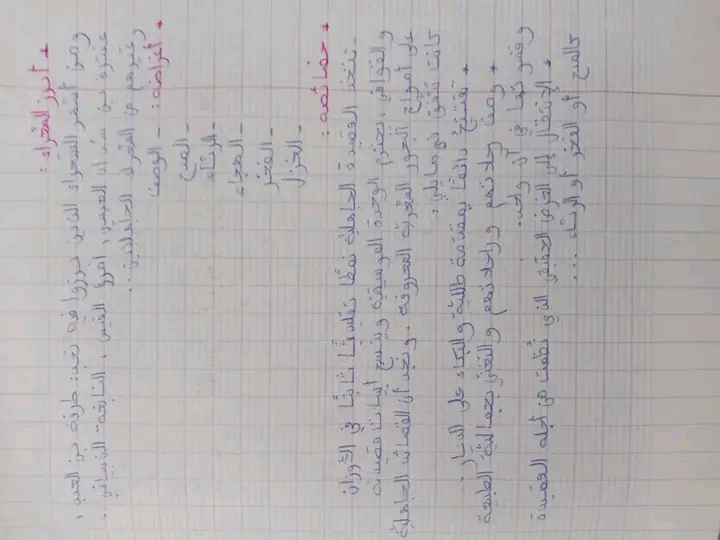 * أبرز الشعراء :
ومن أشهر الشعراء الذين برزوا فيه نجد : طرفة بن العبد ،
عنترة بن شداد العبسي ، امرؤ القيس ، النابغة الذبياني ..
وغيرهم من الشعراء الجاهليين ..
* أغراضه : - الوصف
- المدح
- الرثاء
- الهجاء
- الفخر
- الغزل
* خصائصه :
- تتخذ القصيدة الجاهلية نمطا تقليديا ثابتا في الأوزان
و القوافي ، تحترم الوحدة الموسيقية وينسج أبيات قصيدته
على أمواج البحور الشعرية المعروفة . ونجد أن القصائد الجاهلية
كانت تتفق فيما يلي :
* تفتتح دائما بمقدمة طللية والبكاء على الديار .
* وصف رحلاتهم و راحلاتهم والتغني بجمالية الطبيعة
وقسوتها في آن واحد .
* الإنتقال إلى الغرض الحقيقي الذي نظمت من أجله القصيدة
كالمدح أو الفخر أو الرثاء ...